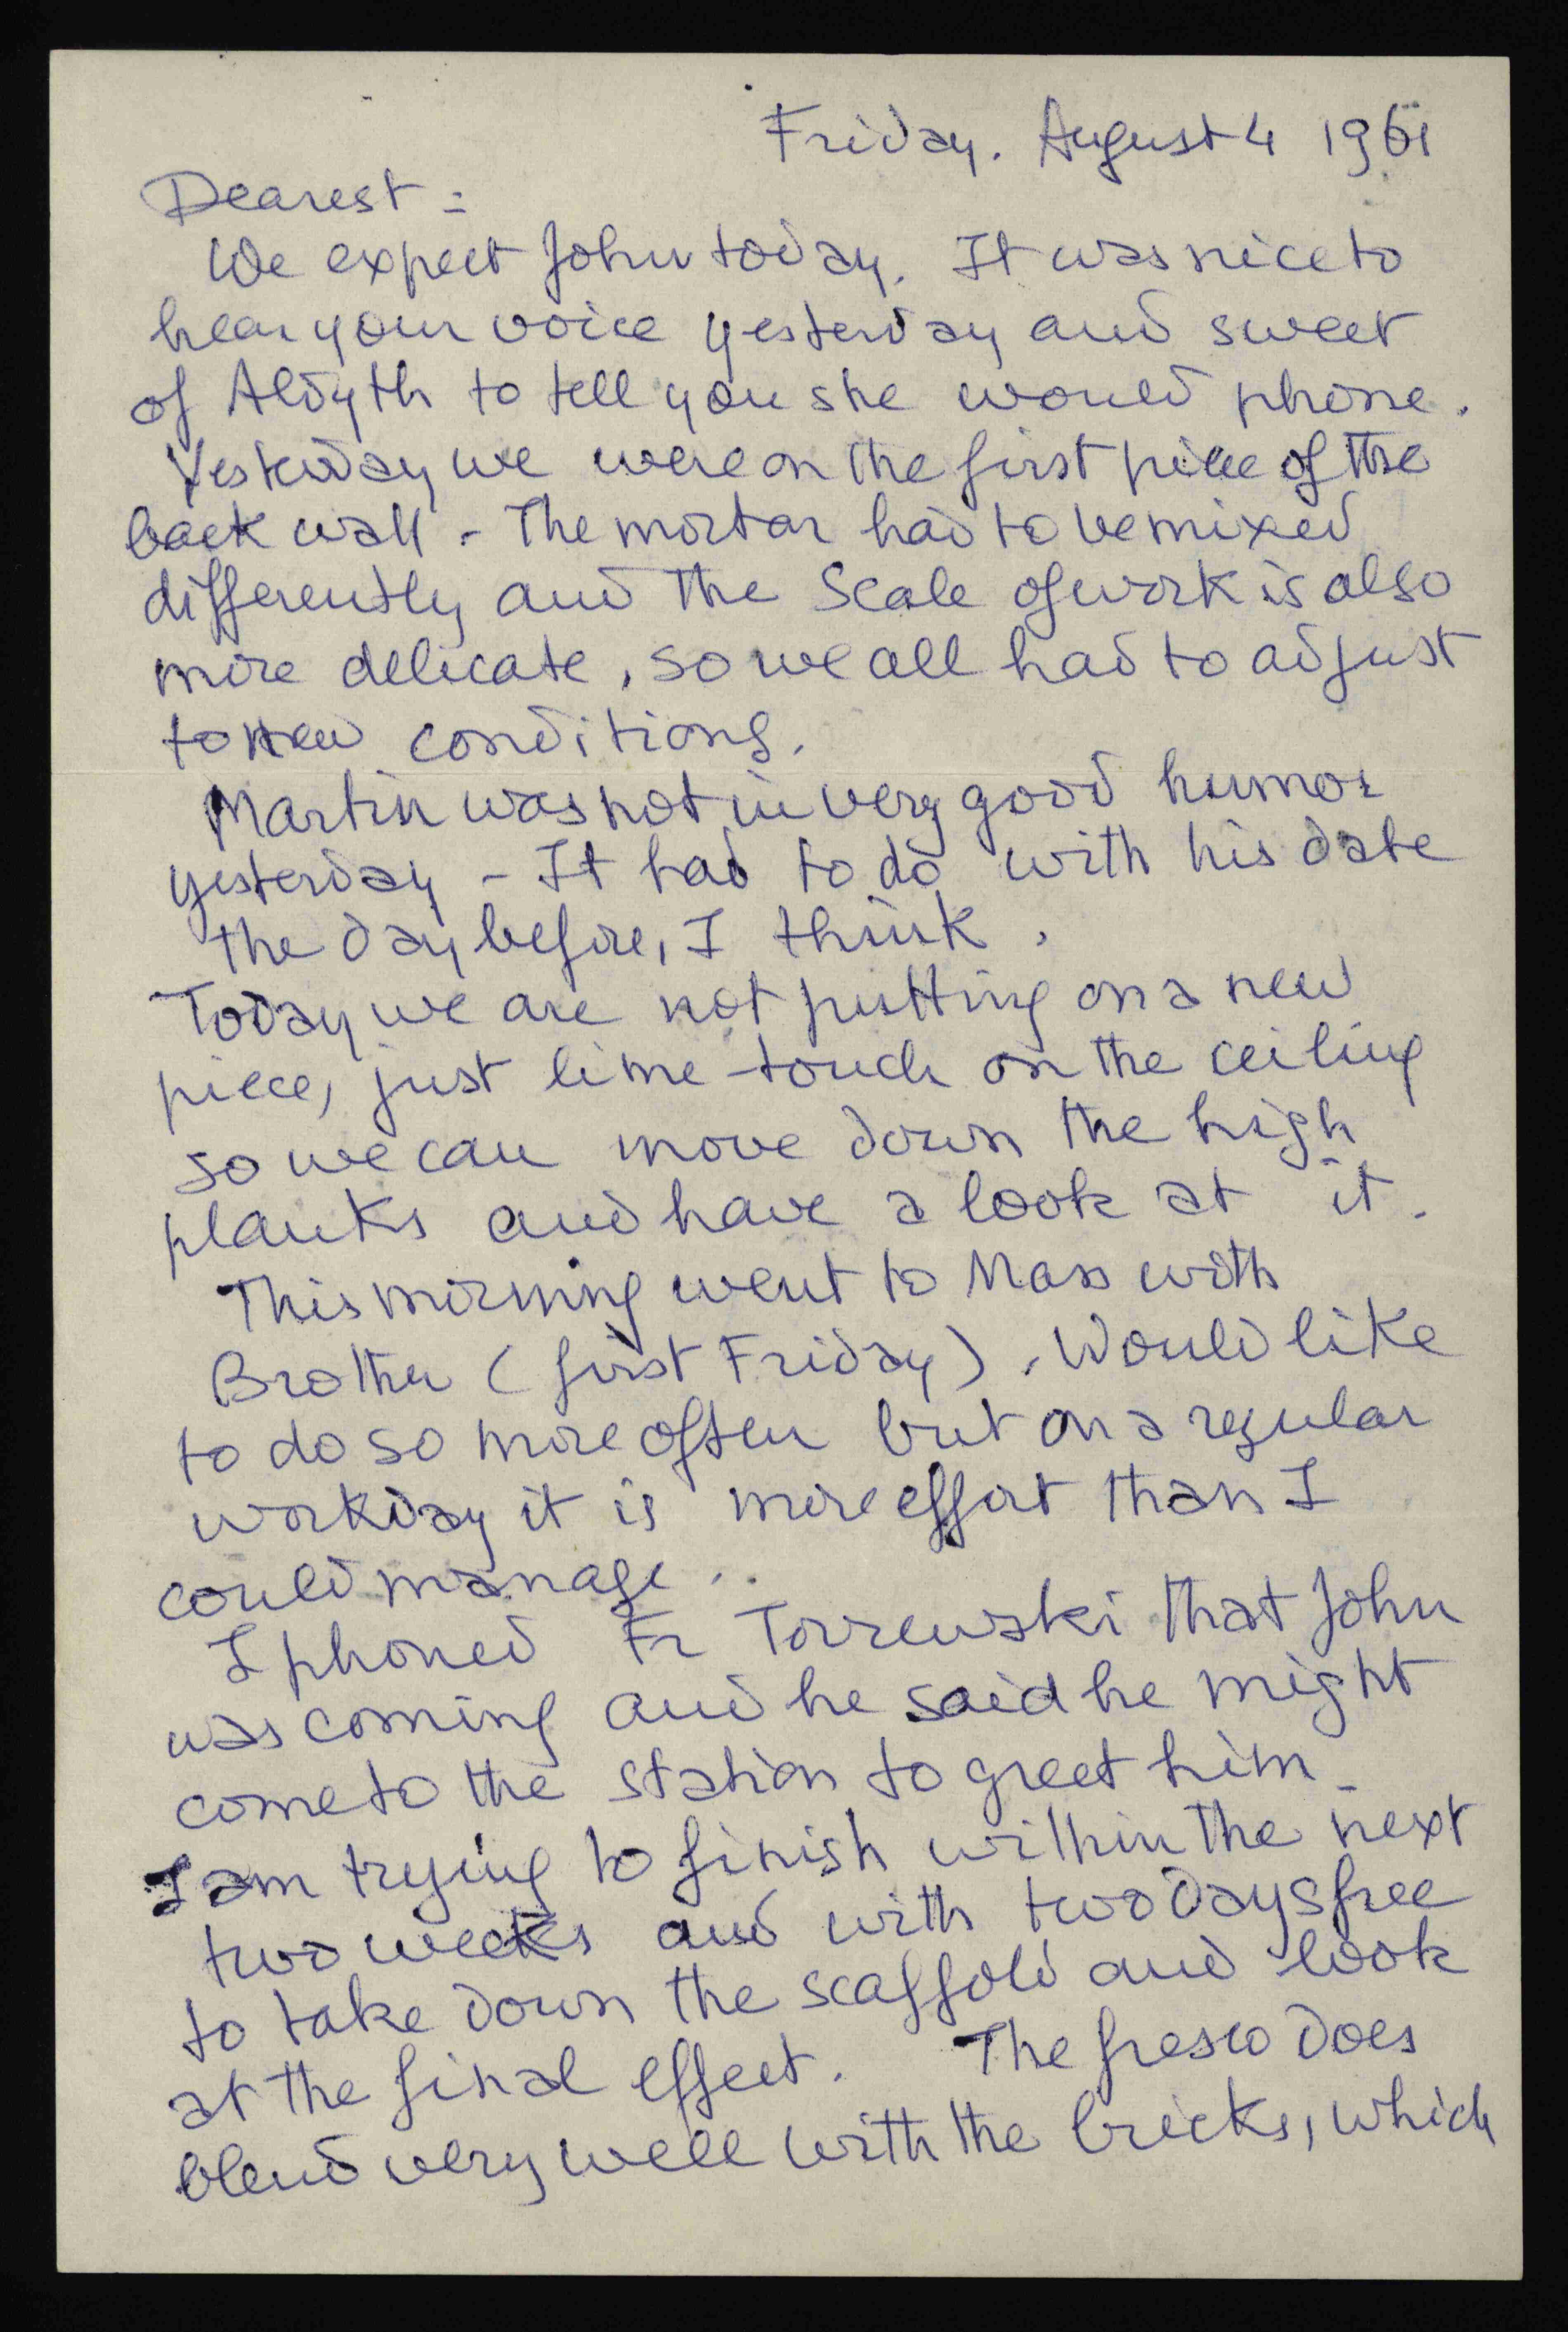 Friday. August 4 1961
Dearest =
We expect John today. It was nice to
hear your voice yesterday and sweet
of Aldyth to tell you she would phone.
Yesterday we were on the first piece of the
back wall - The mortar had to be mixed
differently and the Scale of work is also
more delicate, so we all had to adjust
to new conditions.
Martin was not in very good humor
yesterday - It had to do with his date
the day before, I think.
Today we are not putting on a new
piece, just lime-touch on the ceiling
so we can move down the high
planks and have a look at it.
This morning went to Mass with
Brother (first Friday). Would like
to do so more often but on a regular
workday it is more effort than I
could manage.
I phoned Fr that John
was coming and he said he might
come to the station to greet him_
I am trying to finish within the next
two weeks and with two days free
to take down the scaffold and look
at the final effect. The fresco does
blend very well with the bricks, which